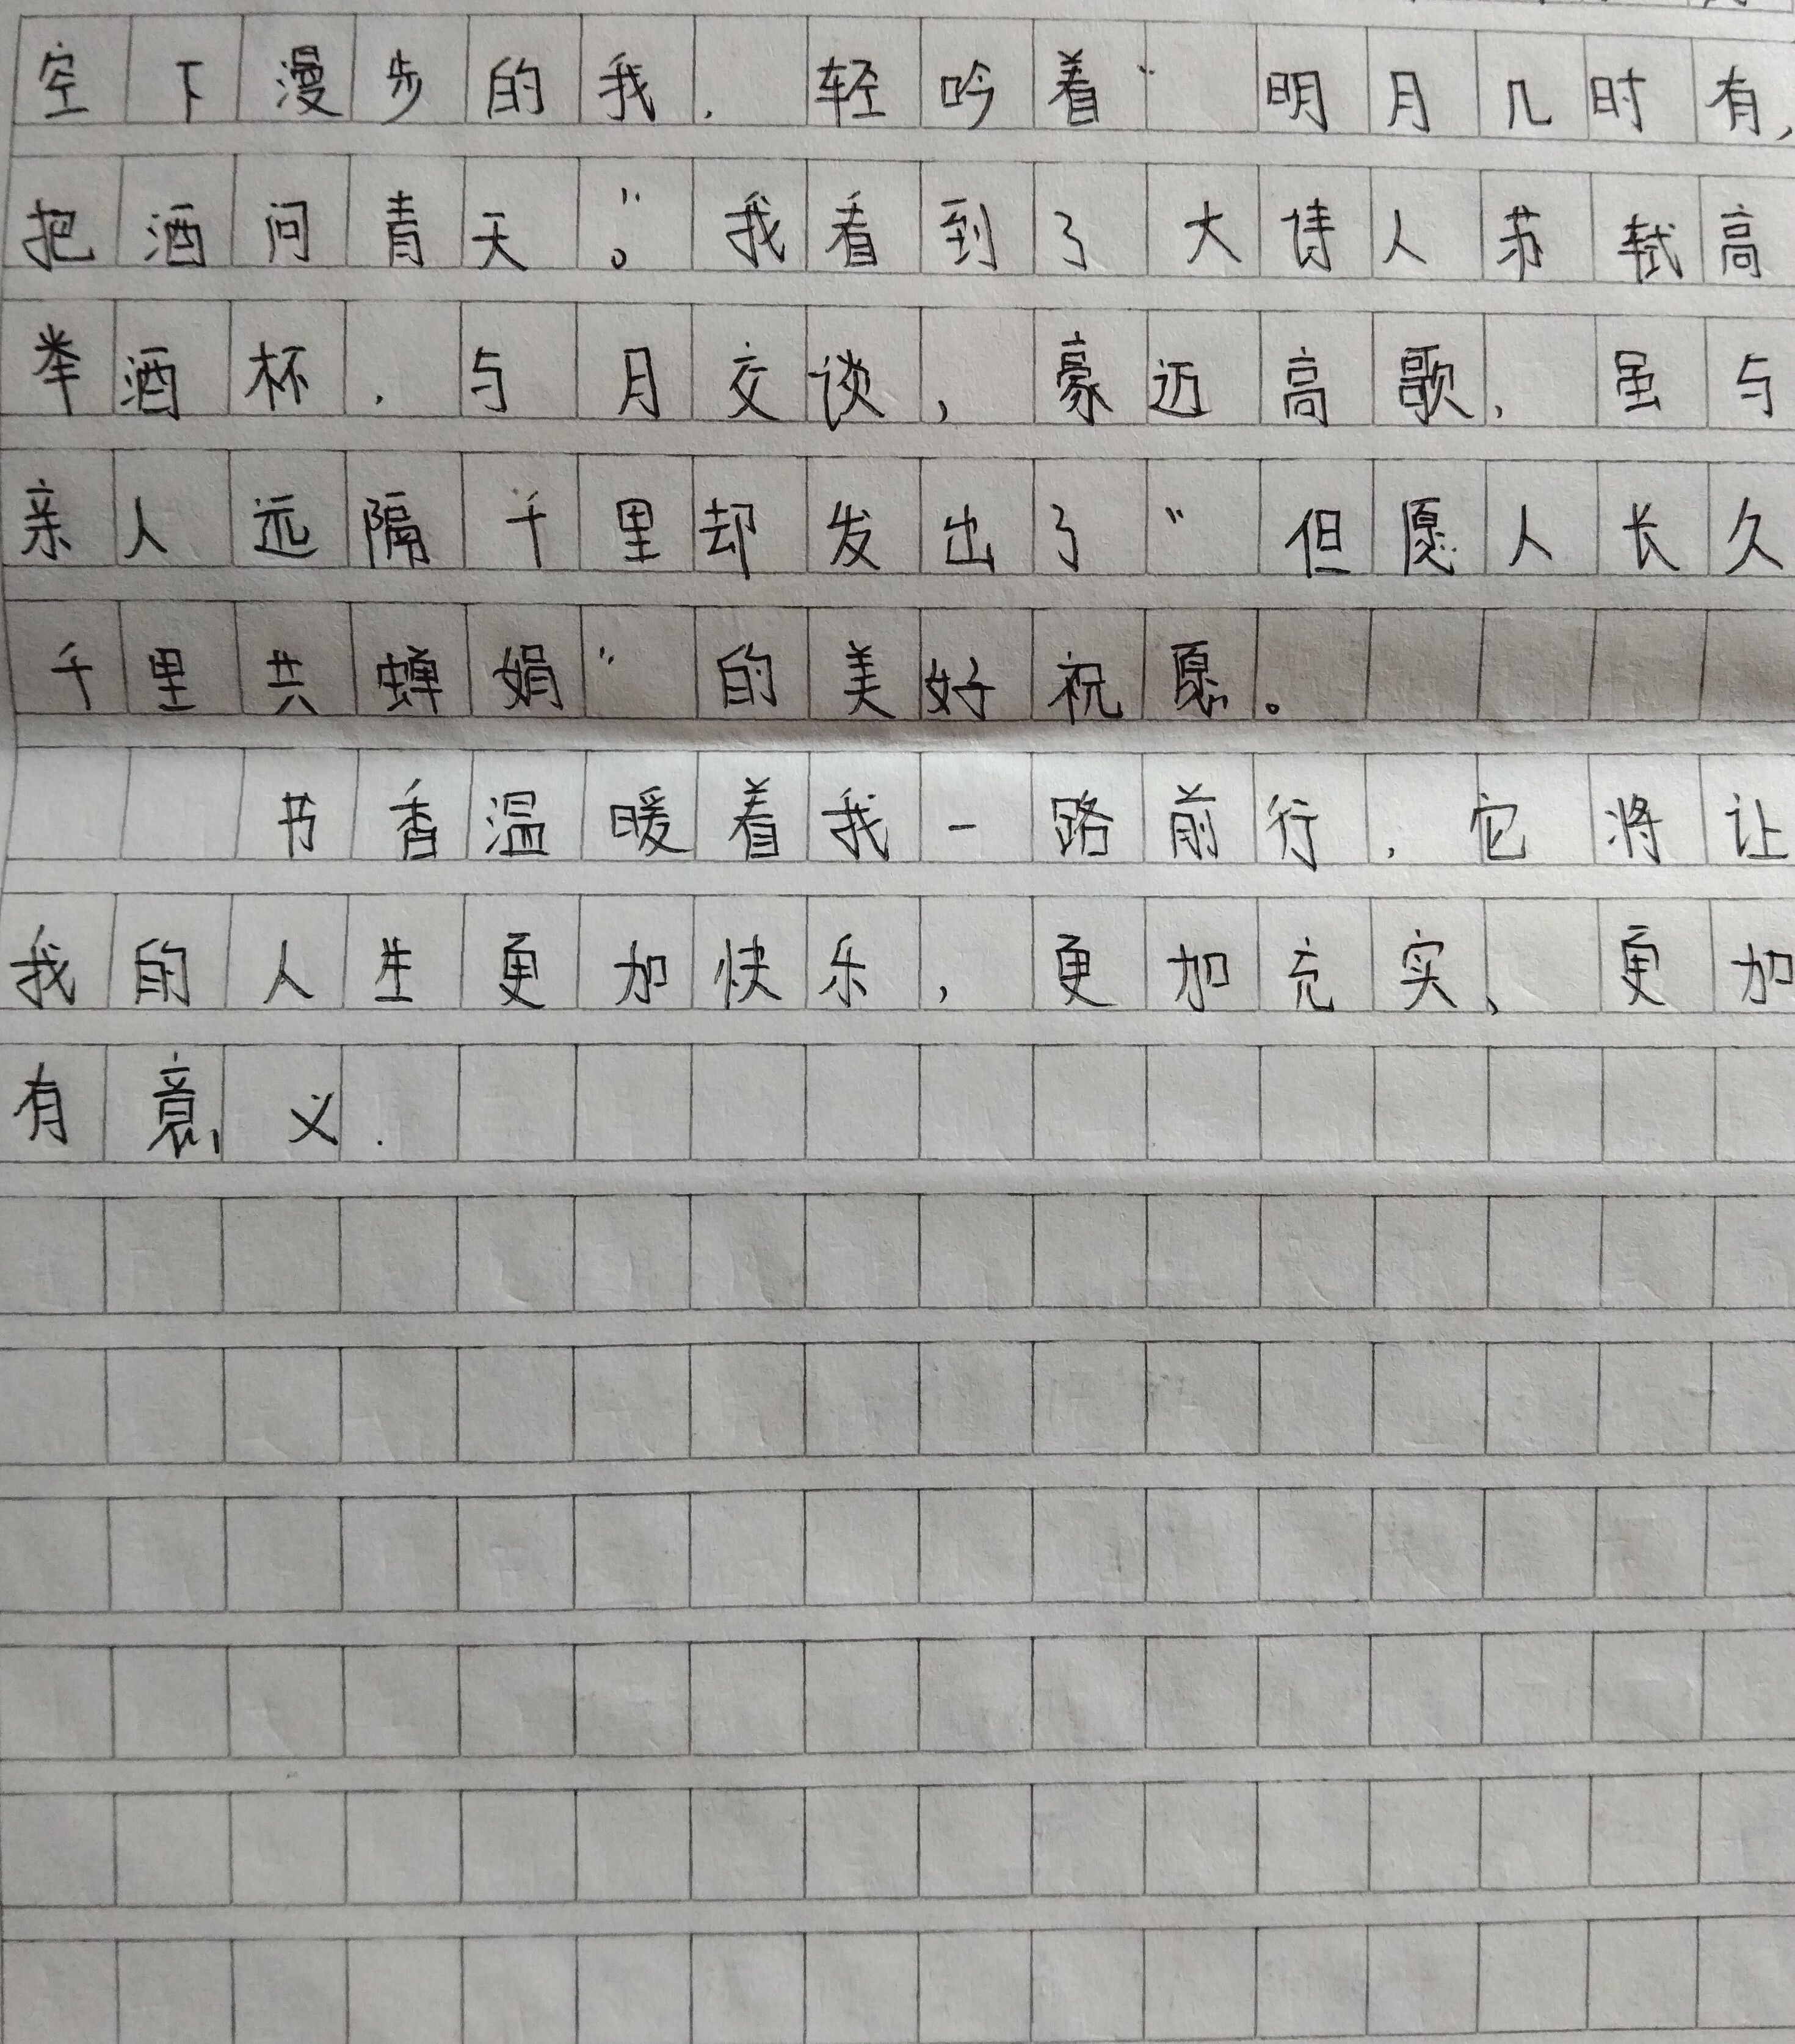 空下漫步的我,轻吟着“明月几时有,
把酒问青天。”我看到了大诗人苏轼高
举酒杯,与月交谈,豪迈高歌,虽与
亲人远隔千里却发出了“但愿人长久
千里共蝉娟”的美好祝愿。
书香温暖着我一路前行,它将让
我的人生更加快乐,更加充实、更加
有意义.